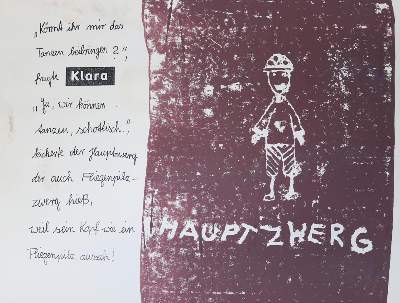 „Könnt ihr mir das
Tanzen beibringen?",
fragte Klara
„Ja, wir können
tanzen, schottisch",
kicherte der Hauptzwerg
der auch Fliegenpilz-
zwerg hieß,
weil sein Kopf wie ein
Fliegenpilz aussah!
HAUPTZWERG